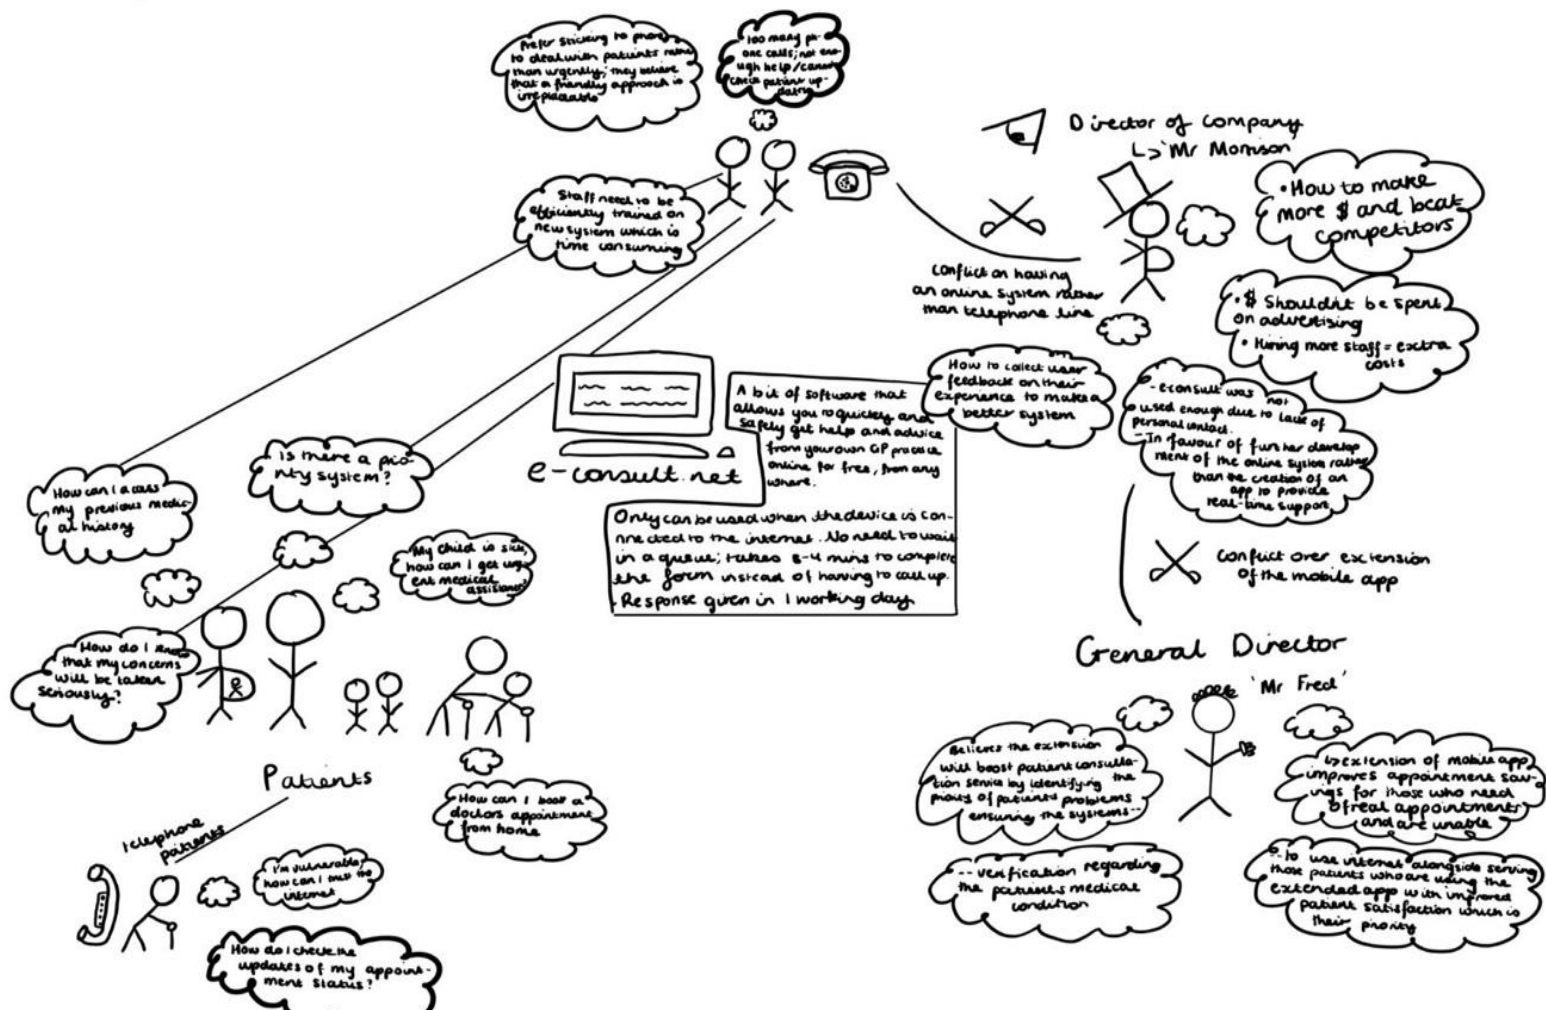 Prefer sticking to phone
to deal with patients rather
than urgently; they believe
that a friendly approach is
irreplaceable
Too many ph-
one calls; not eno-
ugh help/cannot
check patient up-
dates
Staff need to be
efficiently trained on
new system which is
time consuming
Director of company
↳ 'Mr Morrison'
• How to make
more $ and beat
competitors
• $ Shouldn't be spent
on advertising
• Hiring more staff = extra
costs
Conflict on having
an online system rather
than telephone line
How to collect user
feedback on their
experience to make a
better system
- econsult was not
used enough due to lack of
personal contact.
- In favour of further develop
ment of the online system rather
than the creation of an
app to provide
real-time support
Conflict over extension
of the mobile app
e-consult.net
A bit of software that
allows you to quickly and
safely get help and advice
from your own GP practice
online for free, from any
where.
Only can be used when the device is con-
nnected to the internet. No need to wait
in a queue; takes 3-4 mins to complete
the form instead of having to call up.
Response given in 1 working day
How can I access
my previous medic-
al history
Is there a prio-
rity system?
My child is sick,
how can I get urg-
ent medical
assistance?
How do I know
that my concerns
will be taken
seriously?
Patients
How can I book a
doctors appointment
from home
Telephone
patients
I'm vulnerable,
how can I trust the
internet
How do I check the
updates of my appoint-
ment status?
General Director
'Mr Fred'
Believes the extension
will boost patient consulta-
tion service by identifying the
priority of patients problems
ensuring the systems--
-- verification regarding
the patients medical
condition
↳ extension of mobile app
improves appointment sav-
ings for those who need
of real appointments
and are unable
-- to use internet alongside serving
those patients who are using the
extended app with improved
patient satisfaction which is
their priority